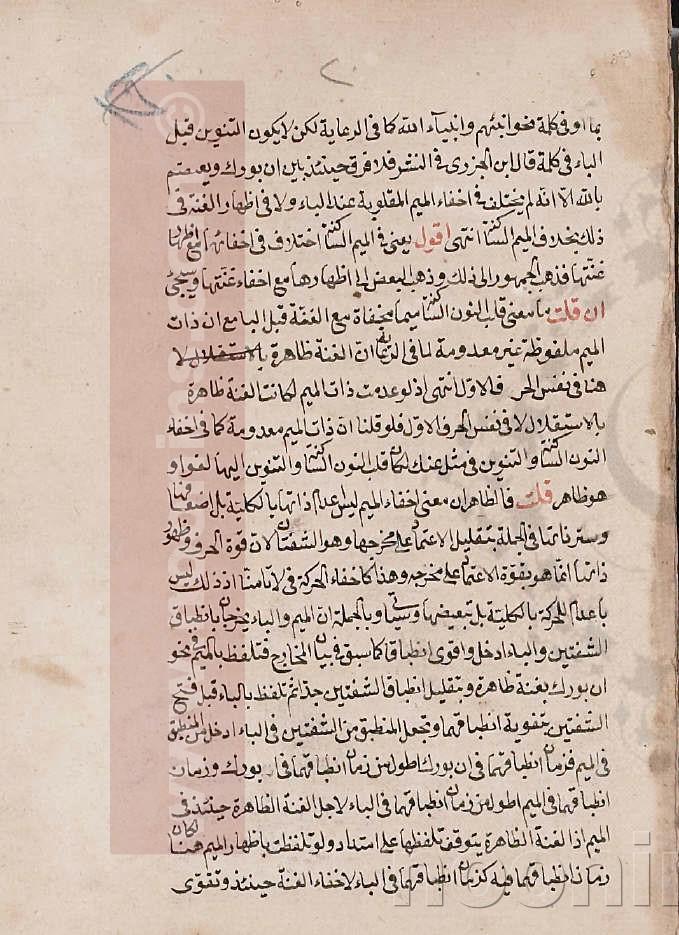 ٢٠
بما او فى كلمة نحو انبئهم وانبياء الله كما فى الرعاية لكن لا يكون التنوين قبل
الباء فى كلمة قال ابن الجزرى فى النشر فلا فرق حينئذ بين ان بورك ويعتصم
بالله الا انه لم يختلف فى اخفاء الميم المقلوبة عند الباء ولا فى اظهار الغنة فى
ذلك بخلاف الميم الساكنة انتهى اقول يعنى فى الميم الساكنة اختلاف فى اخفائها مع اظهار
غنتها فذهب الجمهور الى ذلك وذهب البعض الى اظهارها مع اخفاء غنتها وسيجئ
ان قلت ما معنى قلب النون الساكنة ميما مخفاة مع الغنة قبل الباء مع ان ذات
الميم ملفوظة غير معدومة لما فى الرعاية ان الغنة ظاهرة بالاستقلال لا
هنا فى نفس الحرف الاول انتهى اذ لو عدمت ذات الميم لكانت الغنة ظاهرة
بالاستقلال لا فى نفس الحرف الاول فلو قلنا ان ذات الميم معدومة كما فى اخفاء
النون الساكنة والتنوين فى مثل عنك لكان قلب النون الساكنة والتنوين اليها لغوا و
هو ظاهر قلت فالظاهر ان معنى اخفاء الميم ليس اعدام ذاتها بالكلية بل اضعافها
وستر ذاتها فى الجملة بتقليل الاعتماد على مخرجها وهو الشفتان لان قوة الحرف وظهور
ذاتها انما هو بقوة الاعتماد على مخرجه وهذا كاخفاء الحركة فى لا تامنا اذ ذلك ليس
باعدام الحركة بالكلية بل تبعيضها وسيأتى وبالجملة ان الميم والباء يخرجان بانطباق
الشفتين والباء ادخل واقوى انطباقا كما سبق فى بيان المخارج فتلفظ بالميم فى نحو
ان بورك بغنة ظاهرة وبتقليل انطباق الشفتين جدا ثم تلفظ بالباء قبل فتح
الشفتين بتقوية انطباقهما وتجعل المنطبق من الشفتين فى الباء ادخل من المنطبق
فى الميم فزمان انطباقهما فى ان بورك اطول من زمان انطباقهما فى بورك وزمان
انطباقهما فى الميم اطول من زمان انطباقهما فى الباء لاجل الغنة الظاهرة حينئذ فى
الميم اذ الغنة الظاهرة يتوقف تلفظها على امتداد ولو تلفظت باظهار الميم هنا لكان
زمان انطباقهما فيه كزمان انطباقهما فى الباء لاخفاء الغنة حينئذ وتقوى